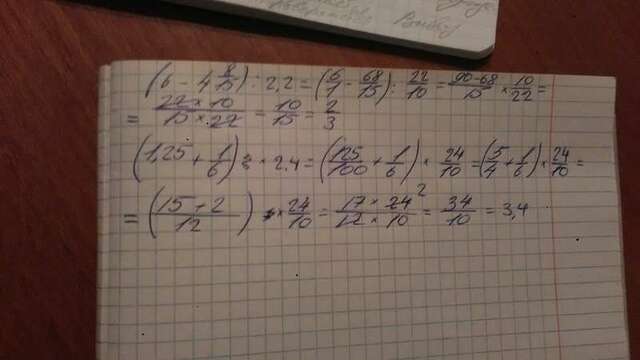 (6 - 4 8/15) : 2,2 = (6/1 - 68/15) : 22/10 = 90-68/15 × 10/22 =
= 22 × 10/15 × 22 = 10/15 = 2/3
(1,25 + 1/6) × 2,4 = (125/100 + 1/6) × 24/10 = (5/4 + 1/6) × 24/10 =
= (15 + 2/12) × 24/10 = 17 × 24 2/12 × 10 = 34/10 = 3,4